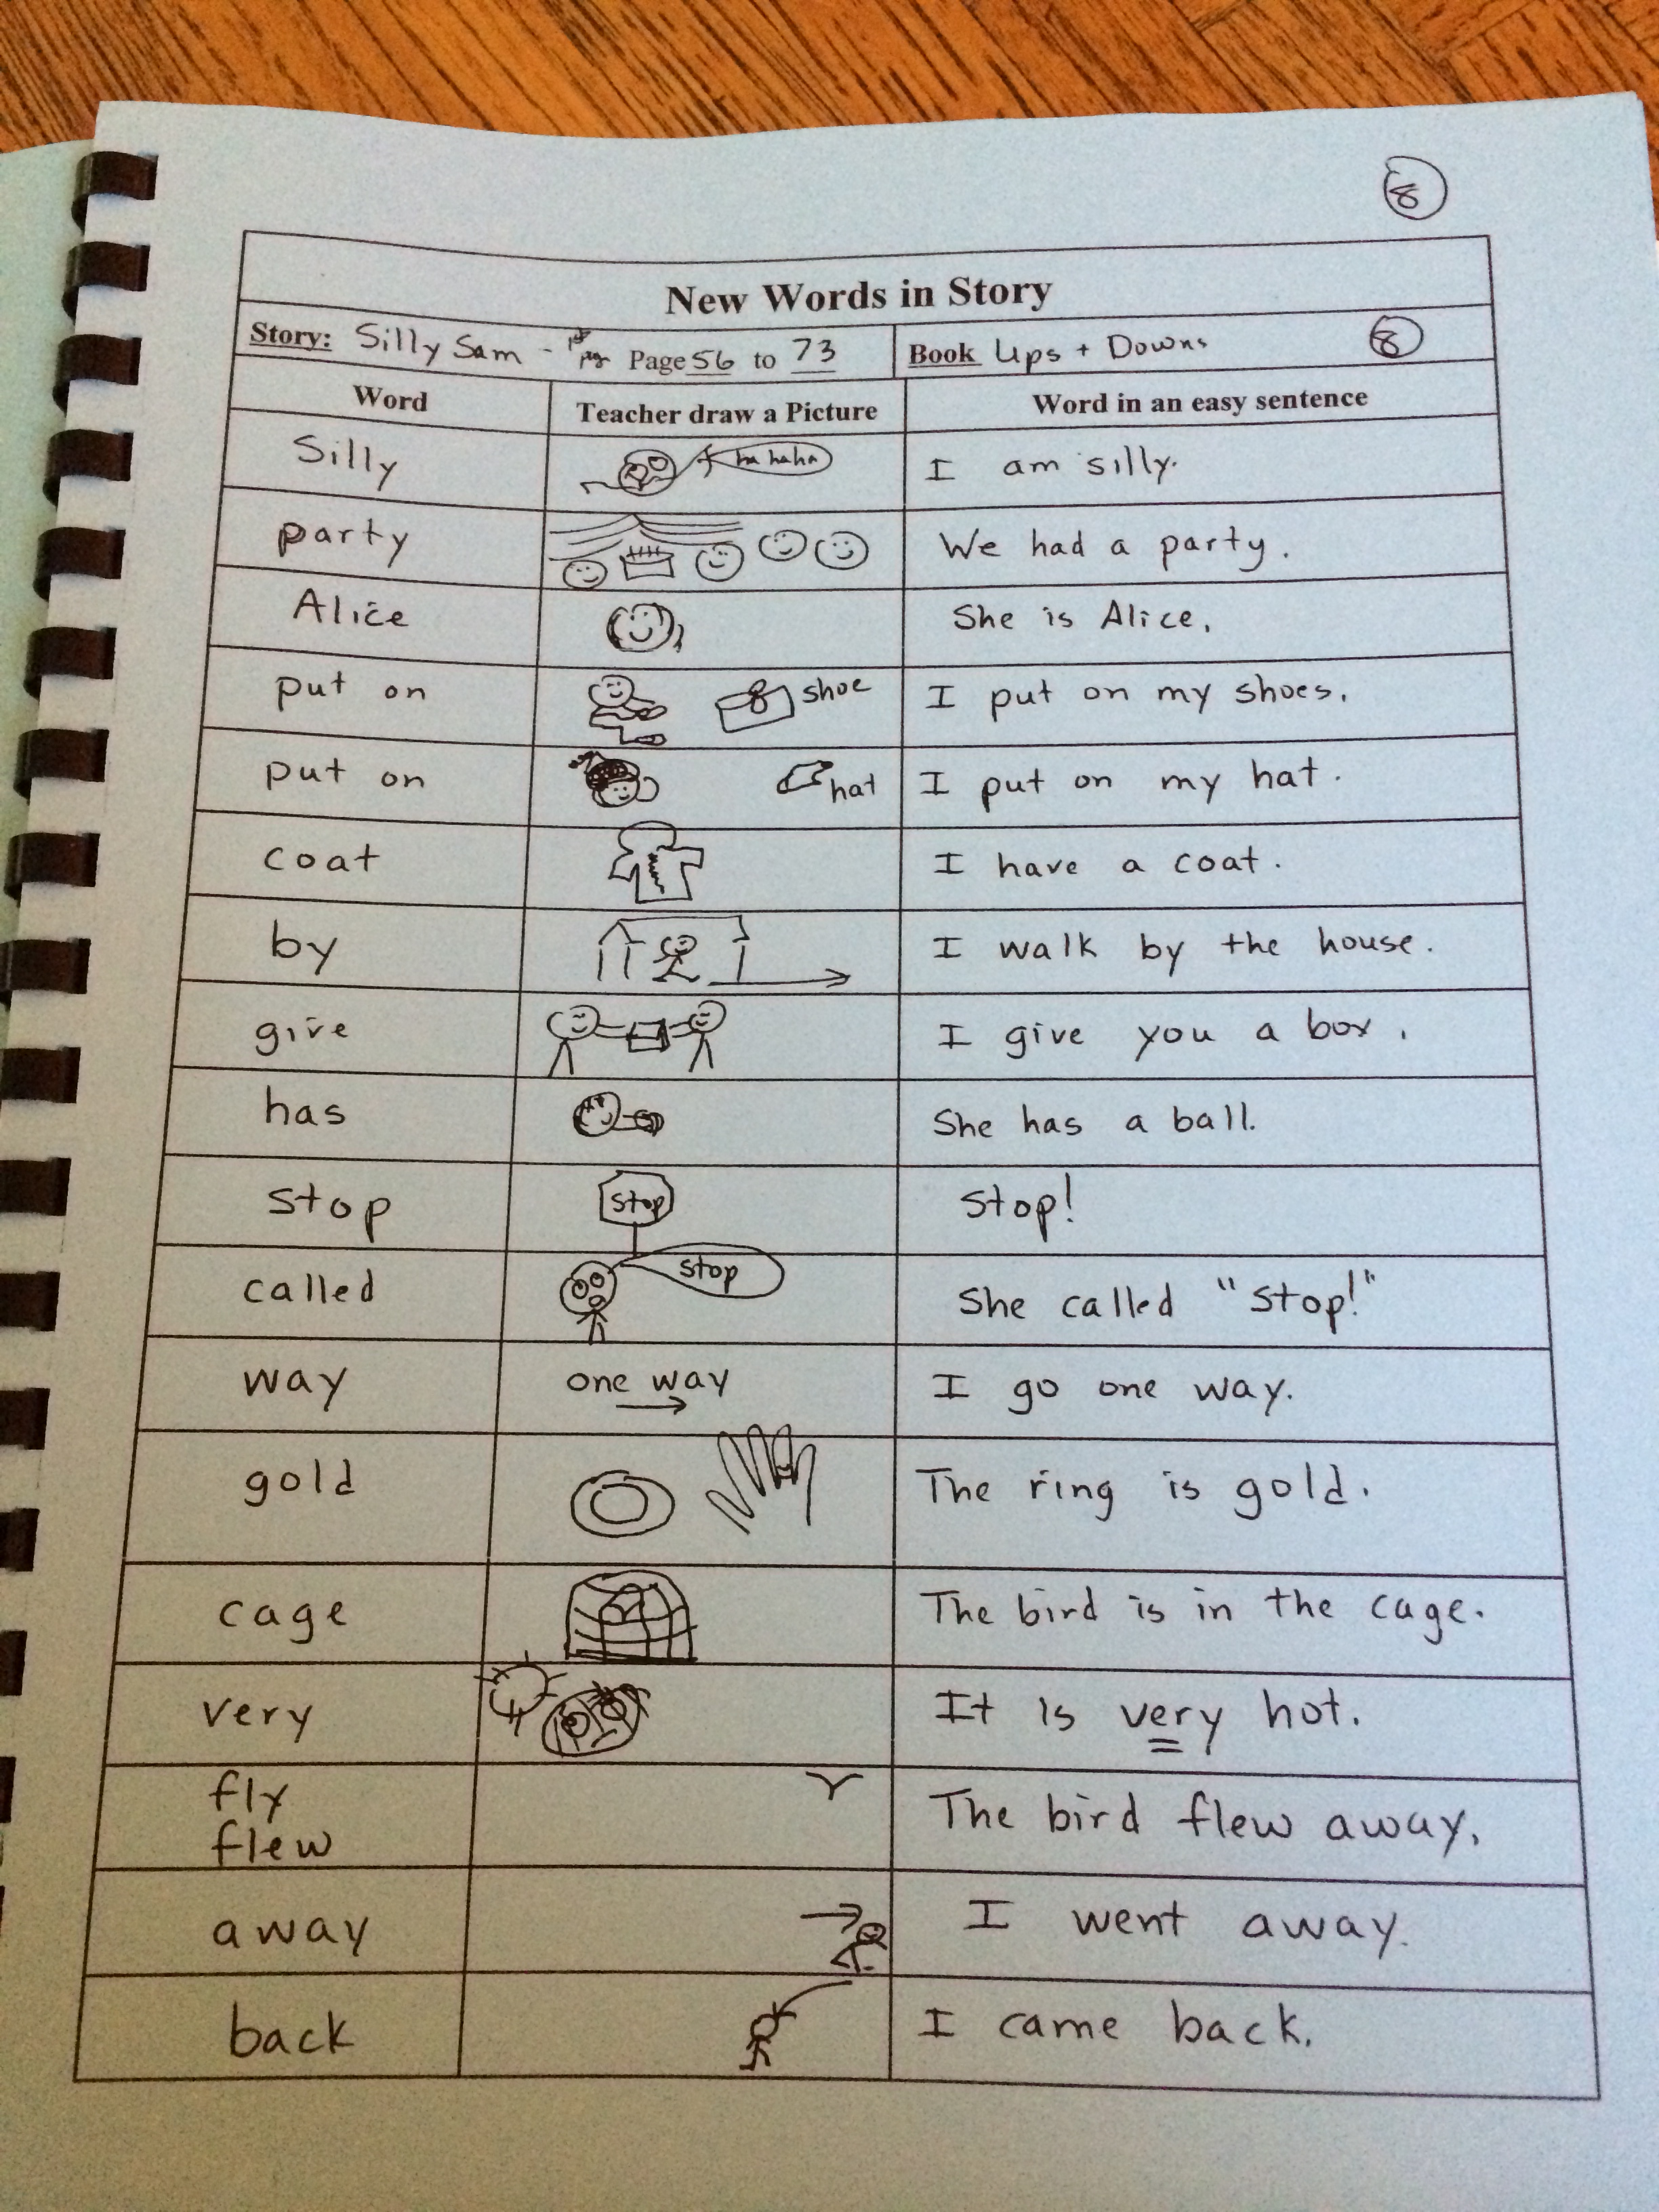 8
New Words in Story
Story: Silly Sam - Page 56 to 73 Book Ups + Downs 8
Word Teacher draw a Picture Word in an easy sentence
Silly ha haha I am silly.
party We had a party.
Alice She is Alice.
put on shoe I put on my shoes.
put on hat I put on my hat.
coat I have a coat.
by I walk by the house.
give I give you a box.
has She has a ball.
stop stop Stop!
called stop She called "Stop!"
way one way I go one way.
gold The ring is gold.
cage The bird is in the cage.
very It is very hot.
fly
flew The bird flew away.
away I went away.
back I came back.